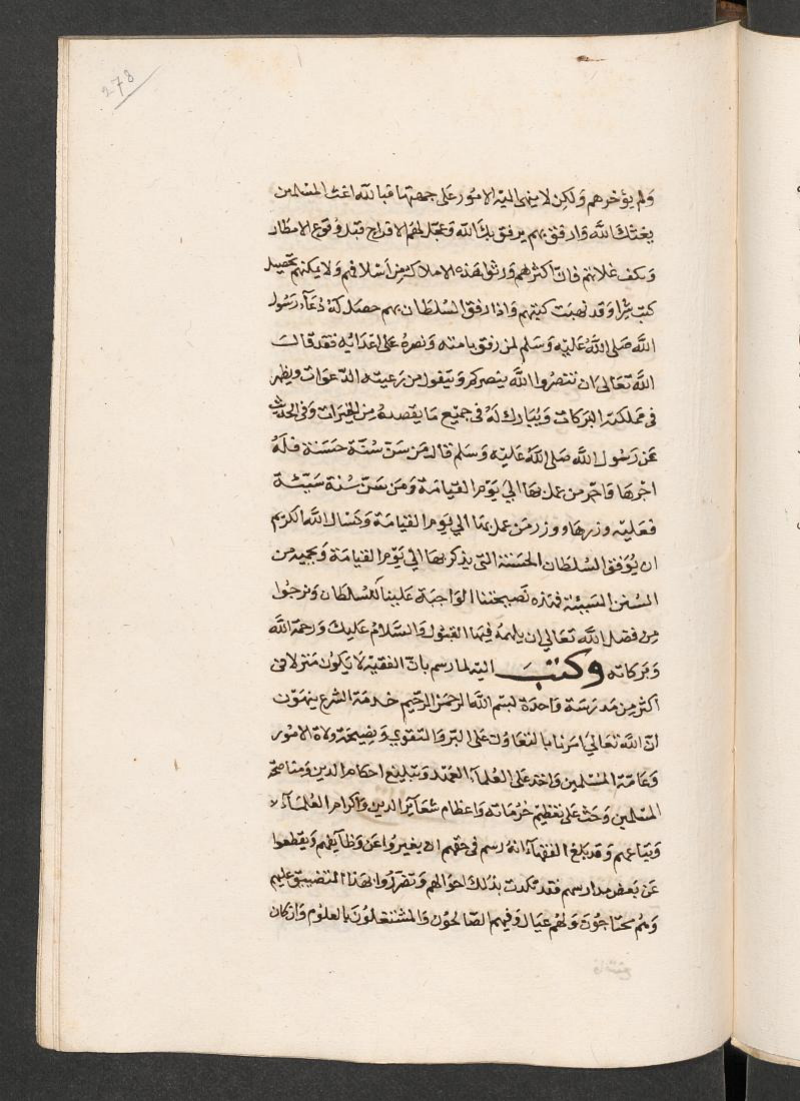 278
ولم يؤخرهم ولكن لا ينهى اليه الامور على جهتها فبالله اغث المسلمين
يغثك الله وارفق بهم يرفق بك الله وعجل لهم الافراج قبل وقوع الامطار
وتلف غلاتهم فان اكثرهم ورثوا هذه الاملاك من اسلافهم ولا يمكنهم تحصيل
كتب شرا وقد نهبت كتبهم واذا رفق السلطان بهم حصل له دعاء رسول
الله صلى الله عليه وسلم لمن رفق بامته ونصره على اعدائه فقد قالــ
الله تعالى ان تنصروا الله ينصركم وتتوفر له من رعيته الدعوات ويظهر
في مملكته البركات ويبارك له في جميع ما يقصده من الخيرات وفي الحديث
عن رسول الله صلى الله عليه وسلم قال من سن سنة حسنة فله
اجرها واجر من عمل بها الي يوم القيامة ومن سن سنة سيئة
فعليه وزرها ووزر من عمل بها الي يوم القيامة ونسال الله الكريم
ان يوفق السلطان الحسنة التي يذكر بها الي يوم القيامة ويحميه من
السنن السيئة فهذه نصيحتنا الواجبة علينا للسلطان ونرجوا
من فضل الله تعالي ان يلهمه فيها القبول والسلام عليك ورحمة الله
وبركاته وكتبــ اليه لما رسم بان الفقيه لا يكون منزلا في
اكثر من مدرسة واحدة لبسم الله الرحمن الرحيم خدمة الشرع ينهون
ان الله تعالي امرنا بالتعاون على البر والتقوي ونصيحة ولاة الامور
وعامة المسلمين واخذ على العلماء العهد وتبليغ احكام الدين ومناصحة
المسلمين وحث على تعظيم حرماته واعظام شعائر الدين واكرام العلماء
وتباعهم وقد بلغ الفقهاء انه رسم في حقهم ان يغيروا عن وظائفهم ويقطعوا
عن بعض مدارسهم فقد نكدت بذلك احوالهم وتضرروا بهذا التضييق عليهم
وهم محتاجون ولهم عيال وفيهم الصالحون والمشتغلون بالعلوم وان كان